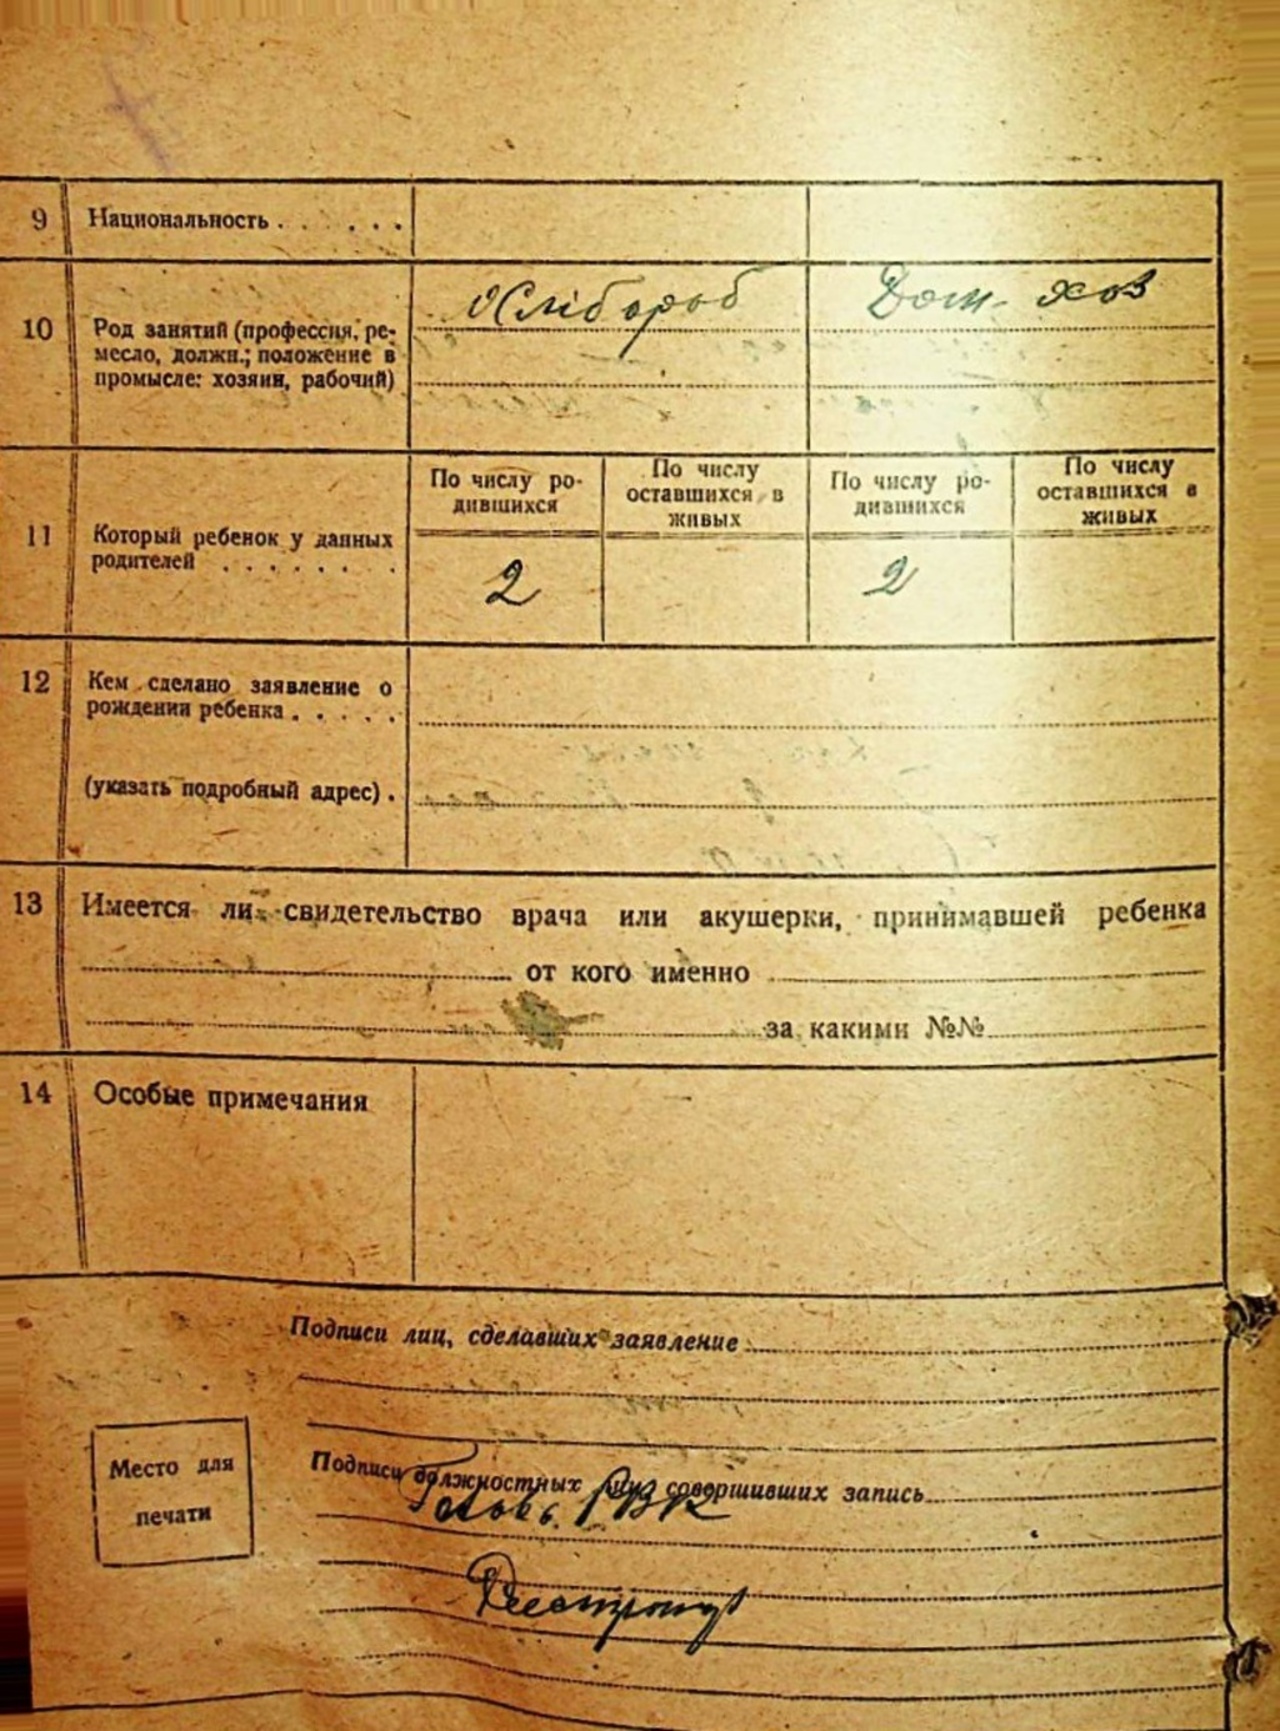 9 Национальность . . . . . .
10 Род занятий (профессия, ре-
месло, должн.; положение в
промысле: хозяин, рабочий)
Хлібороб Дом. хоз
11 Который ребенок у данных
родителей . . . . . . .
По числу ро-
дившихся
По числу
оставшихся в
живых
По числу ро-
дившихся
По числу
оставшихся в
живых
2 2
12 Кем сделано заявление о
рождении ребенка . . . . .
(указать подробный адрес) .
13 Имеется ли свидетельство врача или акушерки, принимавшей ребенка
от кого именно
за какими №№
14 Особые примечания
Подписи лиц, сделавших заявление
Место для
печати
Подписи должностных лиц совершивших запись
Голова